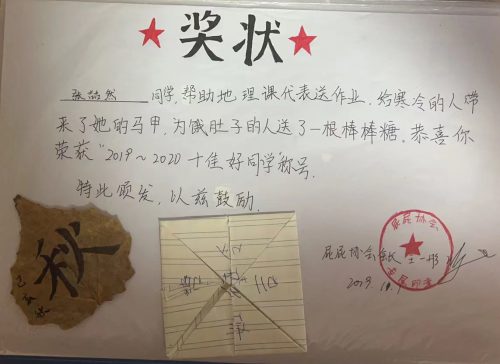 奖状
张喆然 同学,帮助地理课代表送作业,给寒冷的人带
来了她的马甲,为饿肚子的人送了一根棒棒糖,恭喜你
荣获“2019~2020十佳好同学称号.
特此颁发,以兹鼓励.
秋
屁屁协会
屁屁协会会长 王一
2019